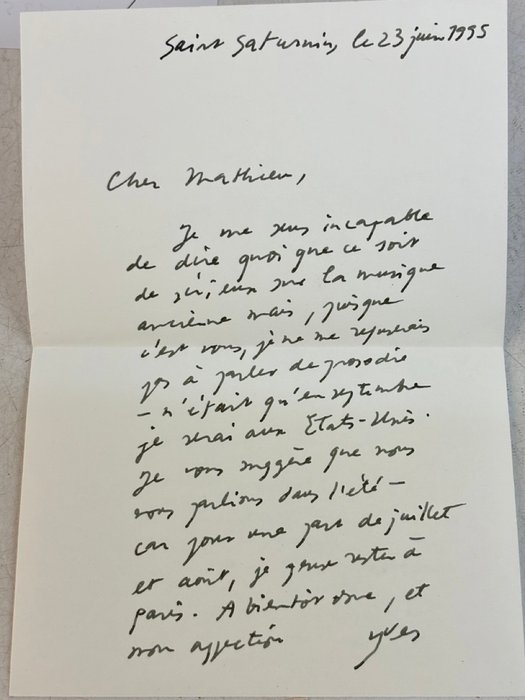 Saint Saturnin, le 23 juin 1995
Cher Mathieu,
Je me sens incapable
de dire quoi que ce soit
de sérieux sur la musique
ancienne mais, puisque
c'est vous, je ne me refuserais
pas à parler de prosodie
– n'était qu'en septembre
je serai aux Etats-Unis.
Je vous suggère que nous
nous parlions dans l'été –
car pour une part de juillet
et août, je peux rester à
Paris. A bientôt donc, et
mon affection Yves